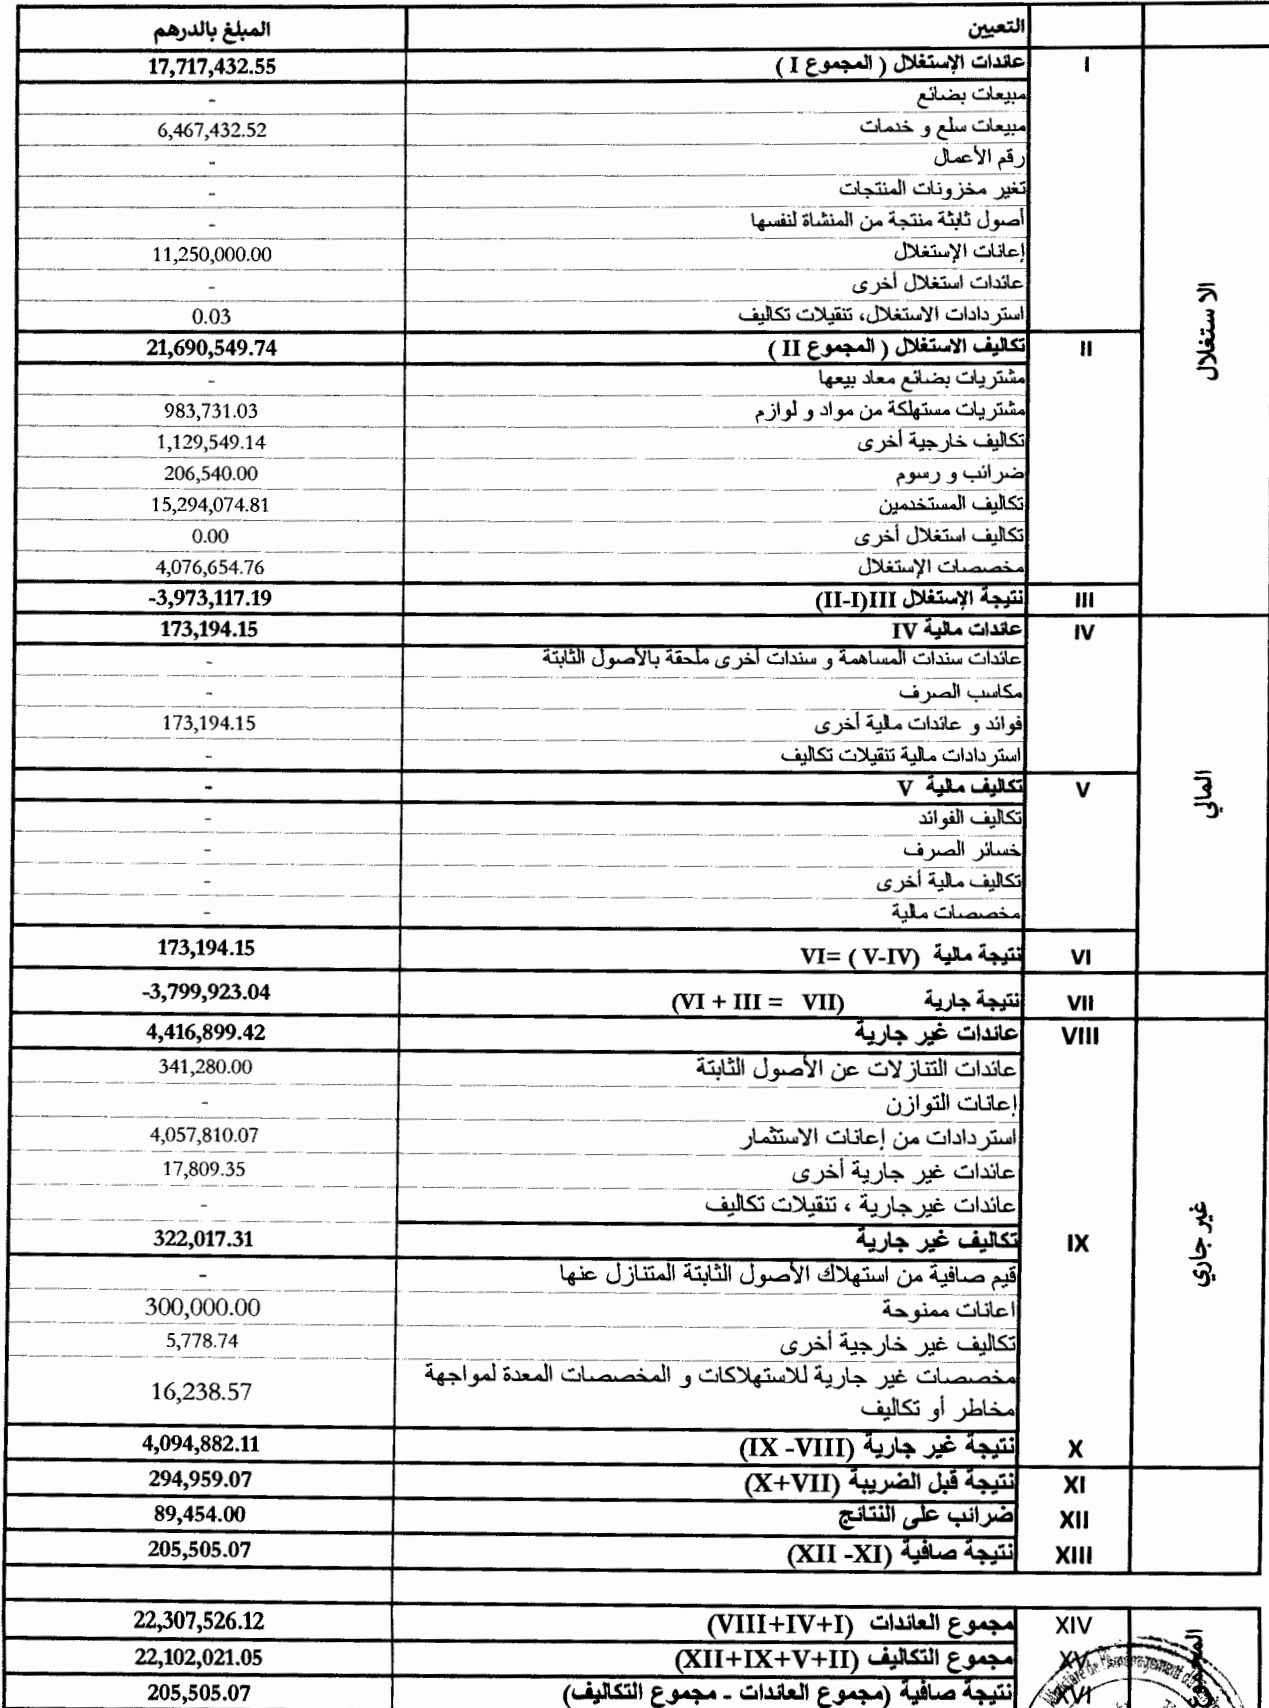 التعيين المبلغ بالدرهم
الاستغلال
I عائدات الإستغلال ( المجموع I ) 17,717,432.55
مبيعات بضائع -
مبيعات سلع و خدمات 6,467,432.52
رقم الأعمال -
تغير مخزونات المنتجات -
أصول ثابثة منتجة من المنشاة لنفسها -
إعانات الإستغلال 11,250,000.00
عائدات استغلال أخرى -
استردادات الاستغلال، تنقيلات تكاليف 0.03
II تكاليف الاستغلال ( المجموع II ) 21,690,549.74
مشتريات بضائع معاد بيعها -
مشتريات مستهلكة من مواد و لوازم 983,731.03
تكاليف خارجية أخرى 1,129,549.14
ضرائب و رسوم 206,540.00
تكاليف المستخدمين 15,294,074.81
تكاليف استغلال أخرى 0.00
مخصصات الإستغلال 4,076,654.76
III نتيجة الإستغلال III(II-I) -3,973,117.19
المالي
IV عائدات مالية IV 173,194.15
عائدات سندات المساهمة و سندات أخرى ملحقة بالأصول الثابتة -
مكاسب الصرف -
فوائد و عائدات مالية أخرى 173,194.15
استردادات مالية تنقيلات تكاليف -
V تكاليف مالية V -
تكاليف الفوائد -
خسائر الصرف -
تكاليف مالية أخرى -
مخصصات مالية -
VI نتيجة مالية VI= ( V-IV) 173,194.15
VII نتيجة جارية (VI + III = VII) -3,799,923.04
غير جاري
VIII عائدات غير جارية 4,416,899.42
عائدات التنازلات عن الأصول الثابتة 341,280.00
إعانات التوازن -
استردادات من إعانات الاستثمار 4,057,810.07
عائدات غير جارية أخرى 17,809.35
عائدات غيرجارية ، تنقيلات تكاليف -
IX تكاليف غير جارية 322,017.31
قيم صافية من استهلاك الأصول الثابتة المتنازل عنها -
اعانات ممنوحة 300,000.00
تكاليف غير خارجية أخرى 5,778.74
مخصصات غير جارية للاستهلاكات و المخصصات المعدة لمواجهة
مخاطر أو تكاليف 16,238.57
X نتيجة غير جارية (IX -VIII) 4,094,882.11
XI نتيجة قبل الضريبة (X+VII) 294,959.07
XII ضرائب على النتائج 89,454.00
XIII نتيجة صافية (XII -XI) 205,505.07
XIV مجموع العائدات (VIII+IV+I) 22,307,526.12
XV مجموع التكاليف (XII+IX+V+II) 22,102,021.05
XVI نتيجة صافية (مجموع العائدات - مجموع التكاليف) 205,505.07